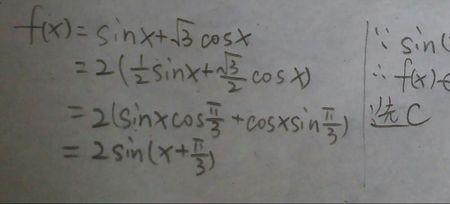 f(x)=sinx+√3 cosx
=2(1/2 sinx+√3/2 cosx)
=2(sinxcosπ/3+cosxsinπ/3)
=2sin(x+π/3)
∵ sin(
∴ f(x)
选C